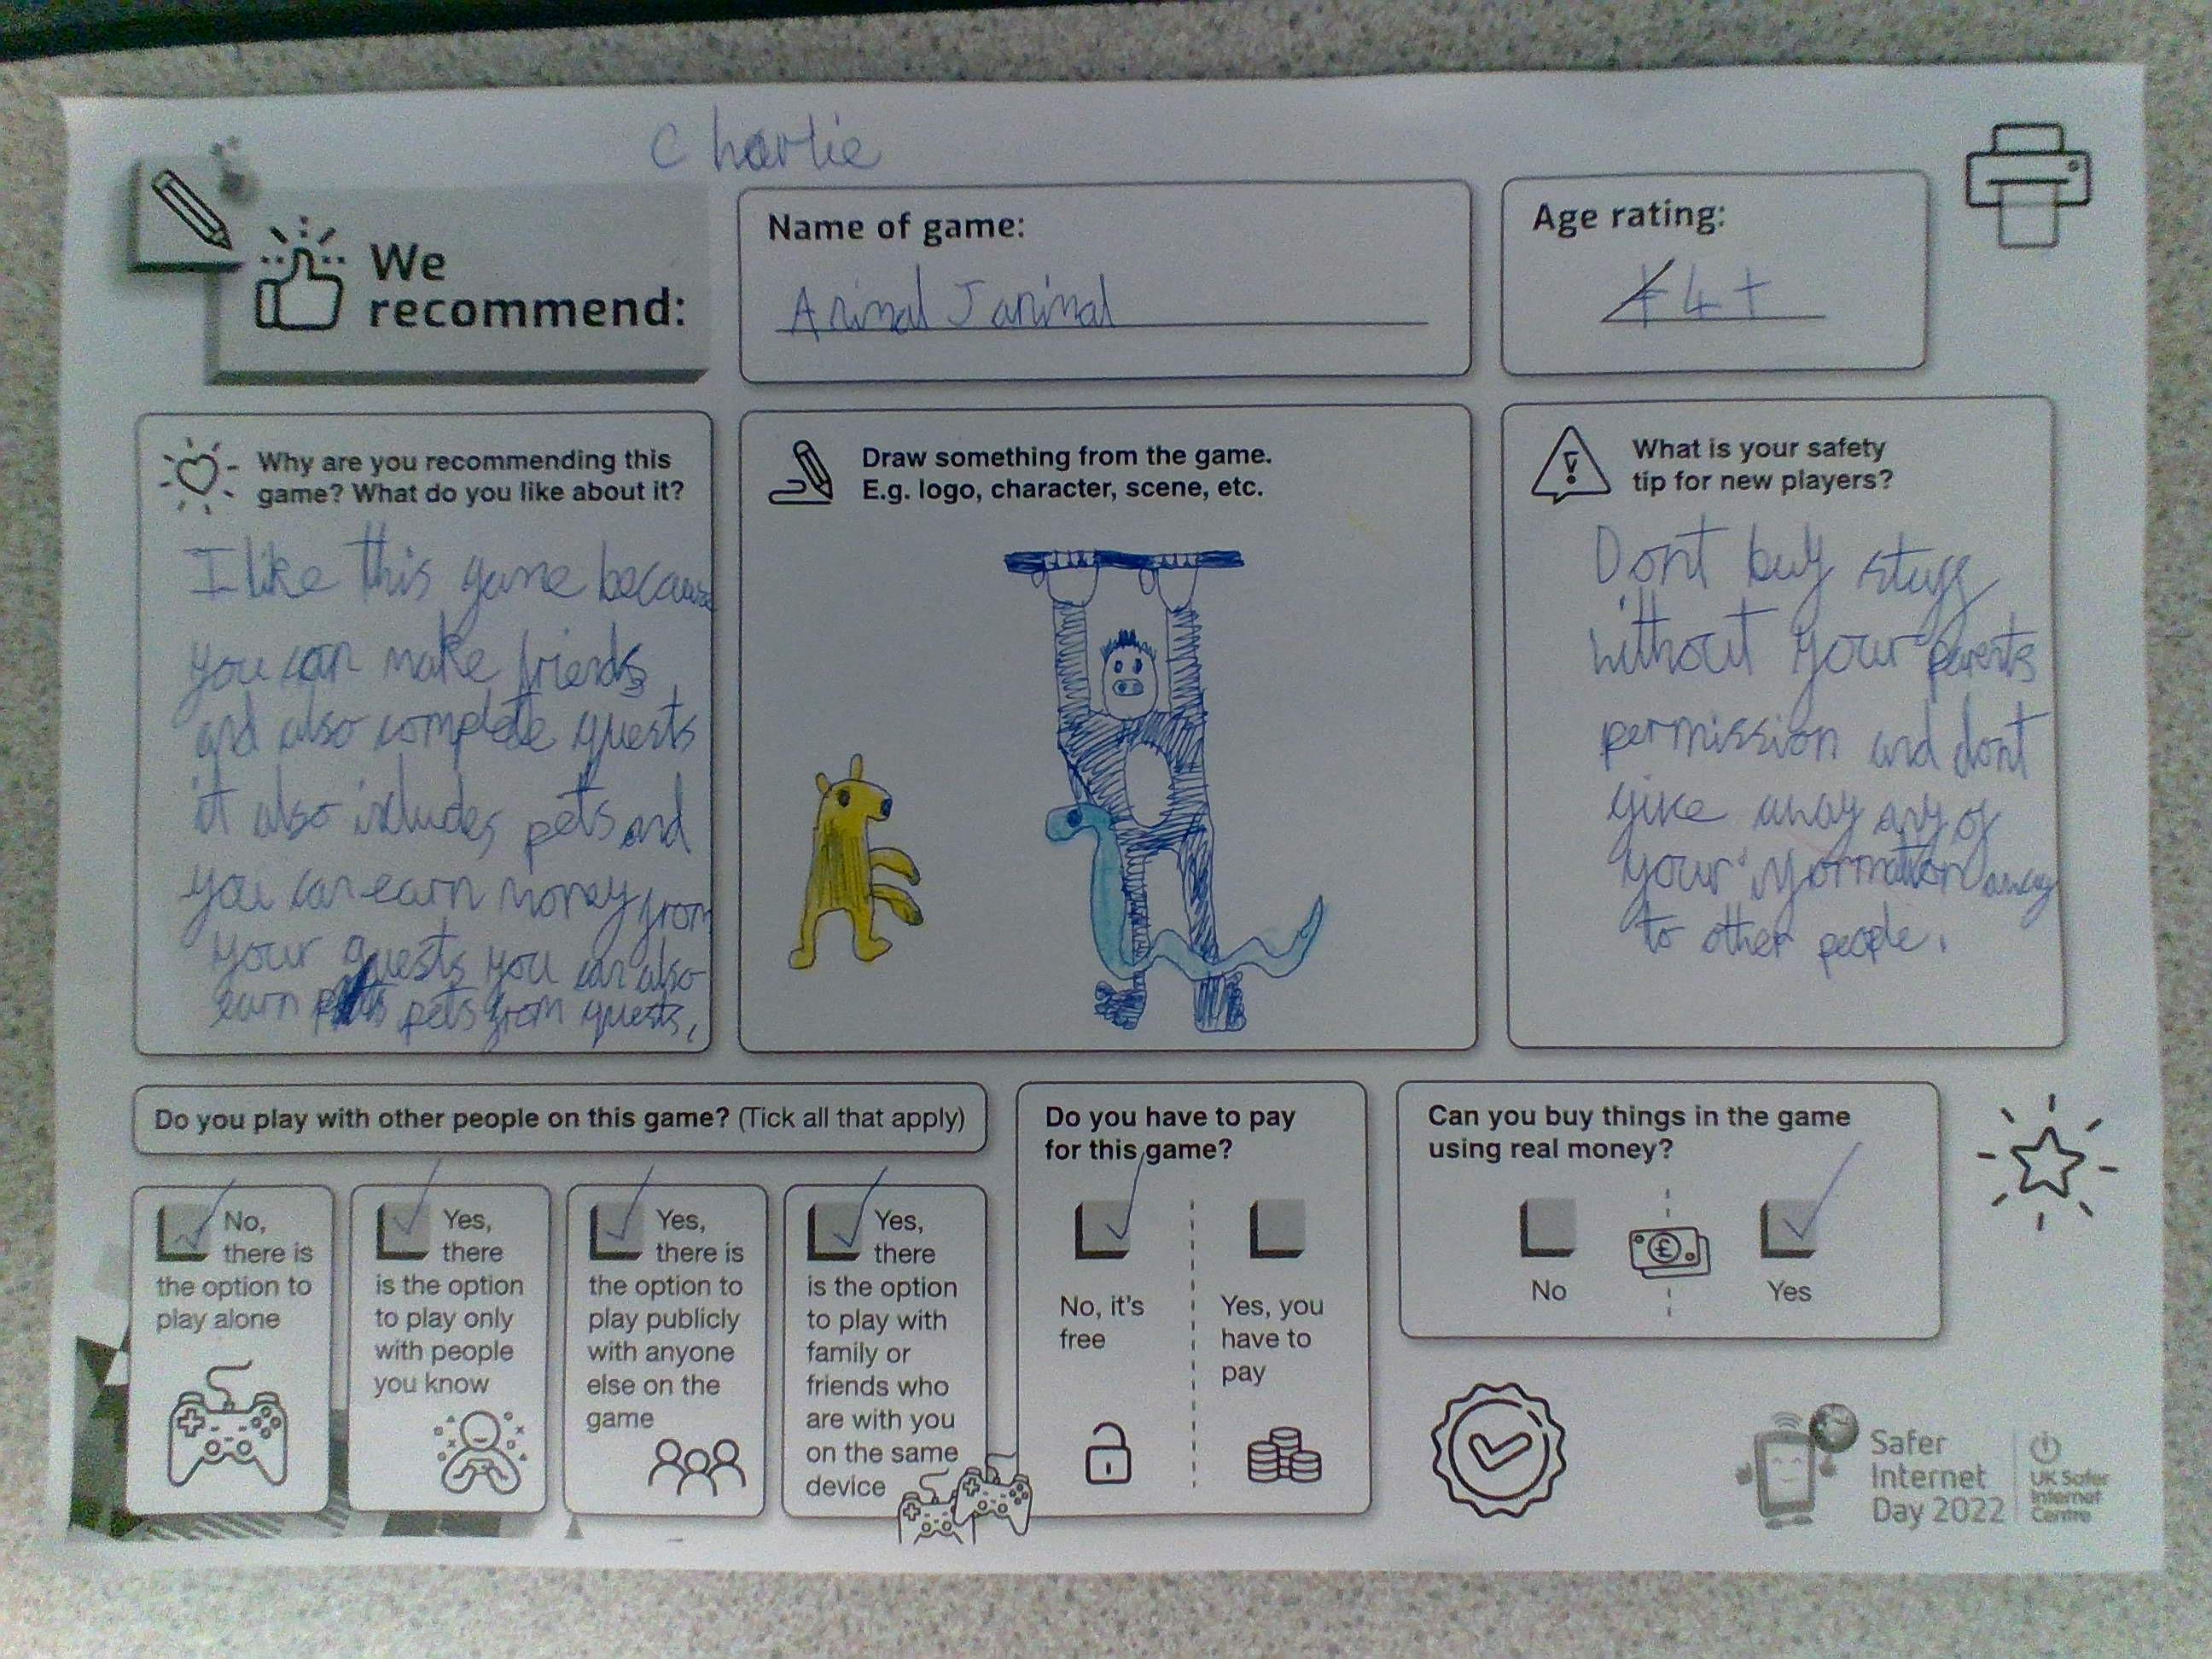 Charlie
We
recommend:
Name of game:
Animal Janimal
Age rating:
4+
Why are you recommending this
game? What do you like about it?
I like this game because
you can make friends
and also complete quests
it also includes pets and
you can earn money from
your quests you can also
earn pets from quests.
Draw something from the game.
E.g. logo, character, scene, etc.
What is your safety
tip for new players?
Dont buy stuff
without your parents
permission and dont
give away any of
your information away
to other people.
Do you play with other people on this game? (Tick all that apply)
No,
there is
the option to
play alone
Yes,
there
is the option
to play only
with people
you know
Yes,
there is
the option to
play publicly
with anyone
else on the
game
Yes,
there
is the option
to play with
family or
friends who
are with you
on the same
device
Do you have to pay
for this game?
No, it's
free
Yes, you
have to
pay
Can you buy things in the game
using real money?
No
£
Yes
Safer
Internet
Day 2022
UK Safer
Internet
Centre